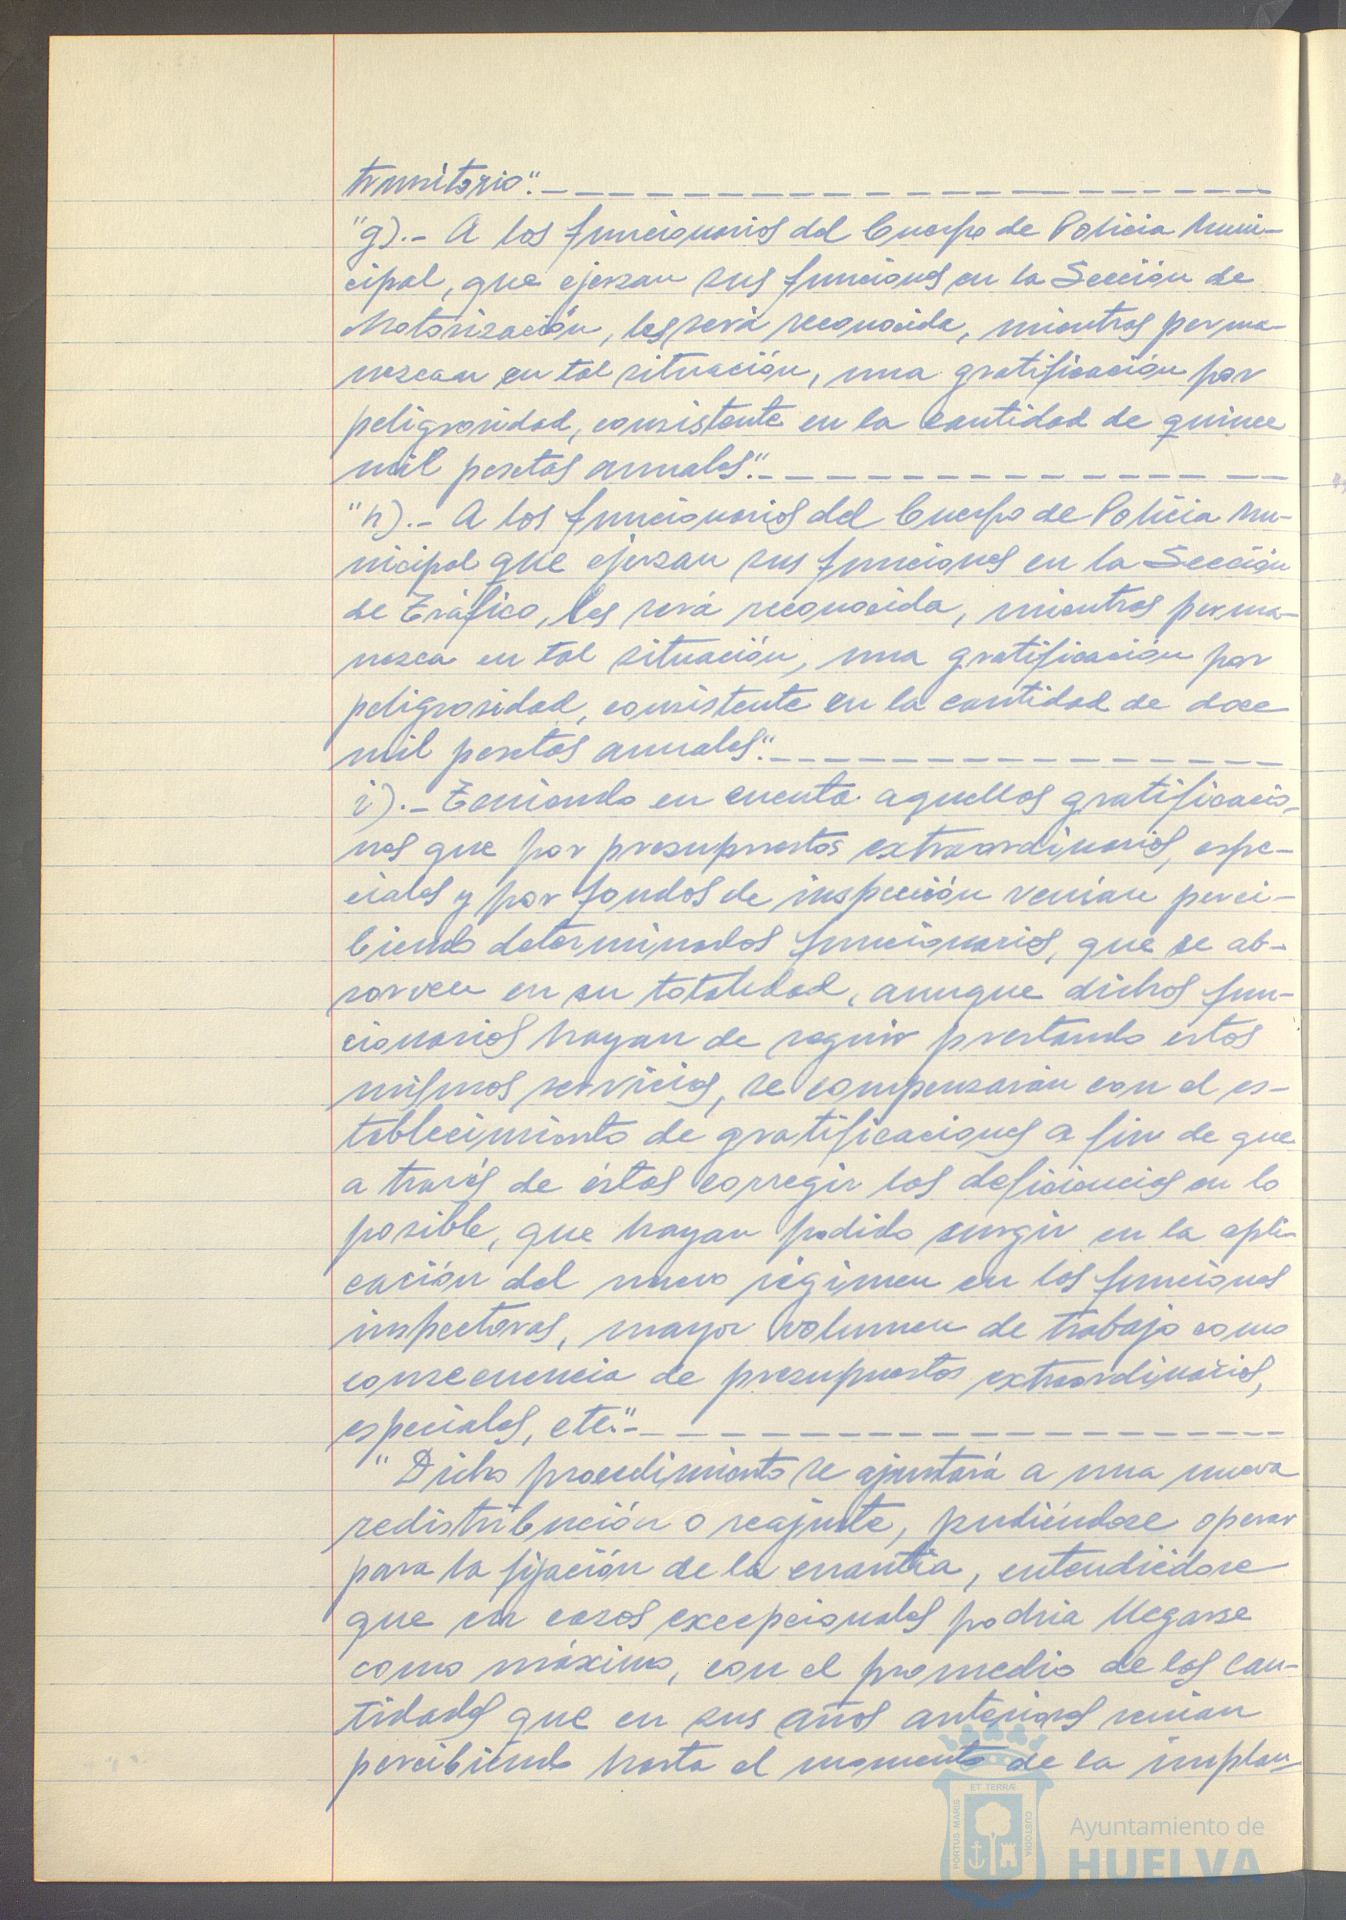 transitorio".-
"g).- A los funcionarios del Cuerpo de Policia Muni-
cipal, que ejerzan sus funciones en la Sección de
Motorización, les será reconocida, mientras perma-
nezcan en tal situación, una gratificación por
peligrosidad, consistente en la cantidad de quince
mil pesetas anuales".-
"h).- A los funcionarios del Cuerpo de Policia Mu-
nicipal que ejerzan sus funciones en la Sección
de Tráfico, les será reconocida, mientras perma-
nezca en tal situación, una gratificación por
peligrosidad, consistente en la cantidad de doce
mil pesetas anuales".-
i).- Teniendo en cuenta aquellas gratificacio-
nes que por presupuestos extraordinarios, espe-
ciales y por fondos de inspección venían perci-
biendo determinados funcionarios, que se ab-
sorven en su totalidad, aunque dichos fun-
cionarios hayan de seguir prestando estos
mismos servicios, se compensarán con el es-
tablecimiento de gratificaciones a fin de que
a través de éstas corregir las deficiencias en lo
posible, que hayan podido surgir en la apli-
cación del nuevo régimen en las funciones
inspectoras, mayor volumen de trabajo como
consecuencia de presupuestos extraordinarios,
especiales, etc".-
" Dicho procedimiento se ajustará a una nueva
redistribución o reajuste, pudiéndose operar
para la fijación de la cuantía, entendiédose
que en casos excepcionales podria llegarse
como máximo, con el promedio de las can-
tidades que en sus años anteriores venian
percibiendo hasta el momento de la implan-
PORTUS MARIS
ET TERRÆ
CUSTODIA
Ayuntamiento de
HUELVA